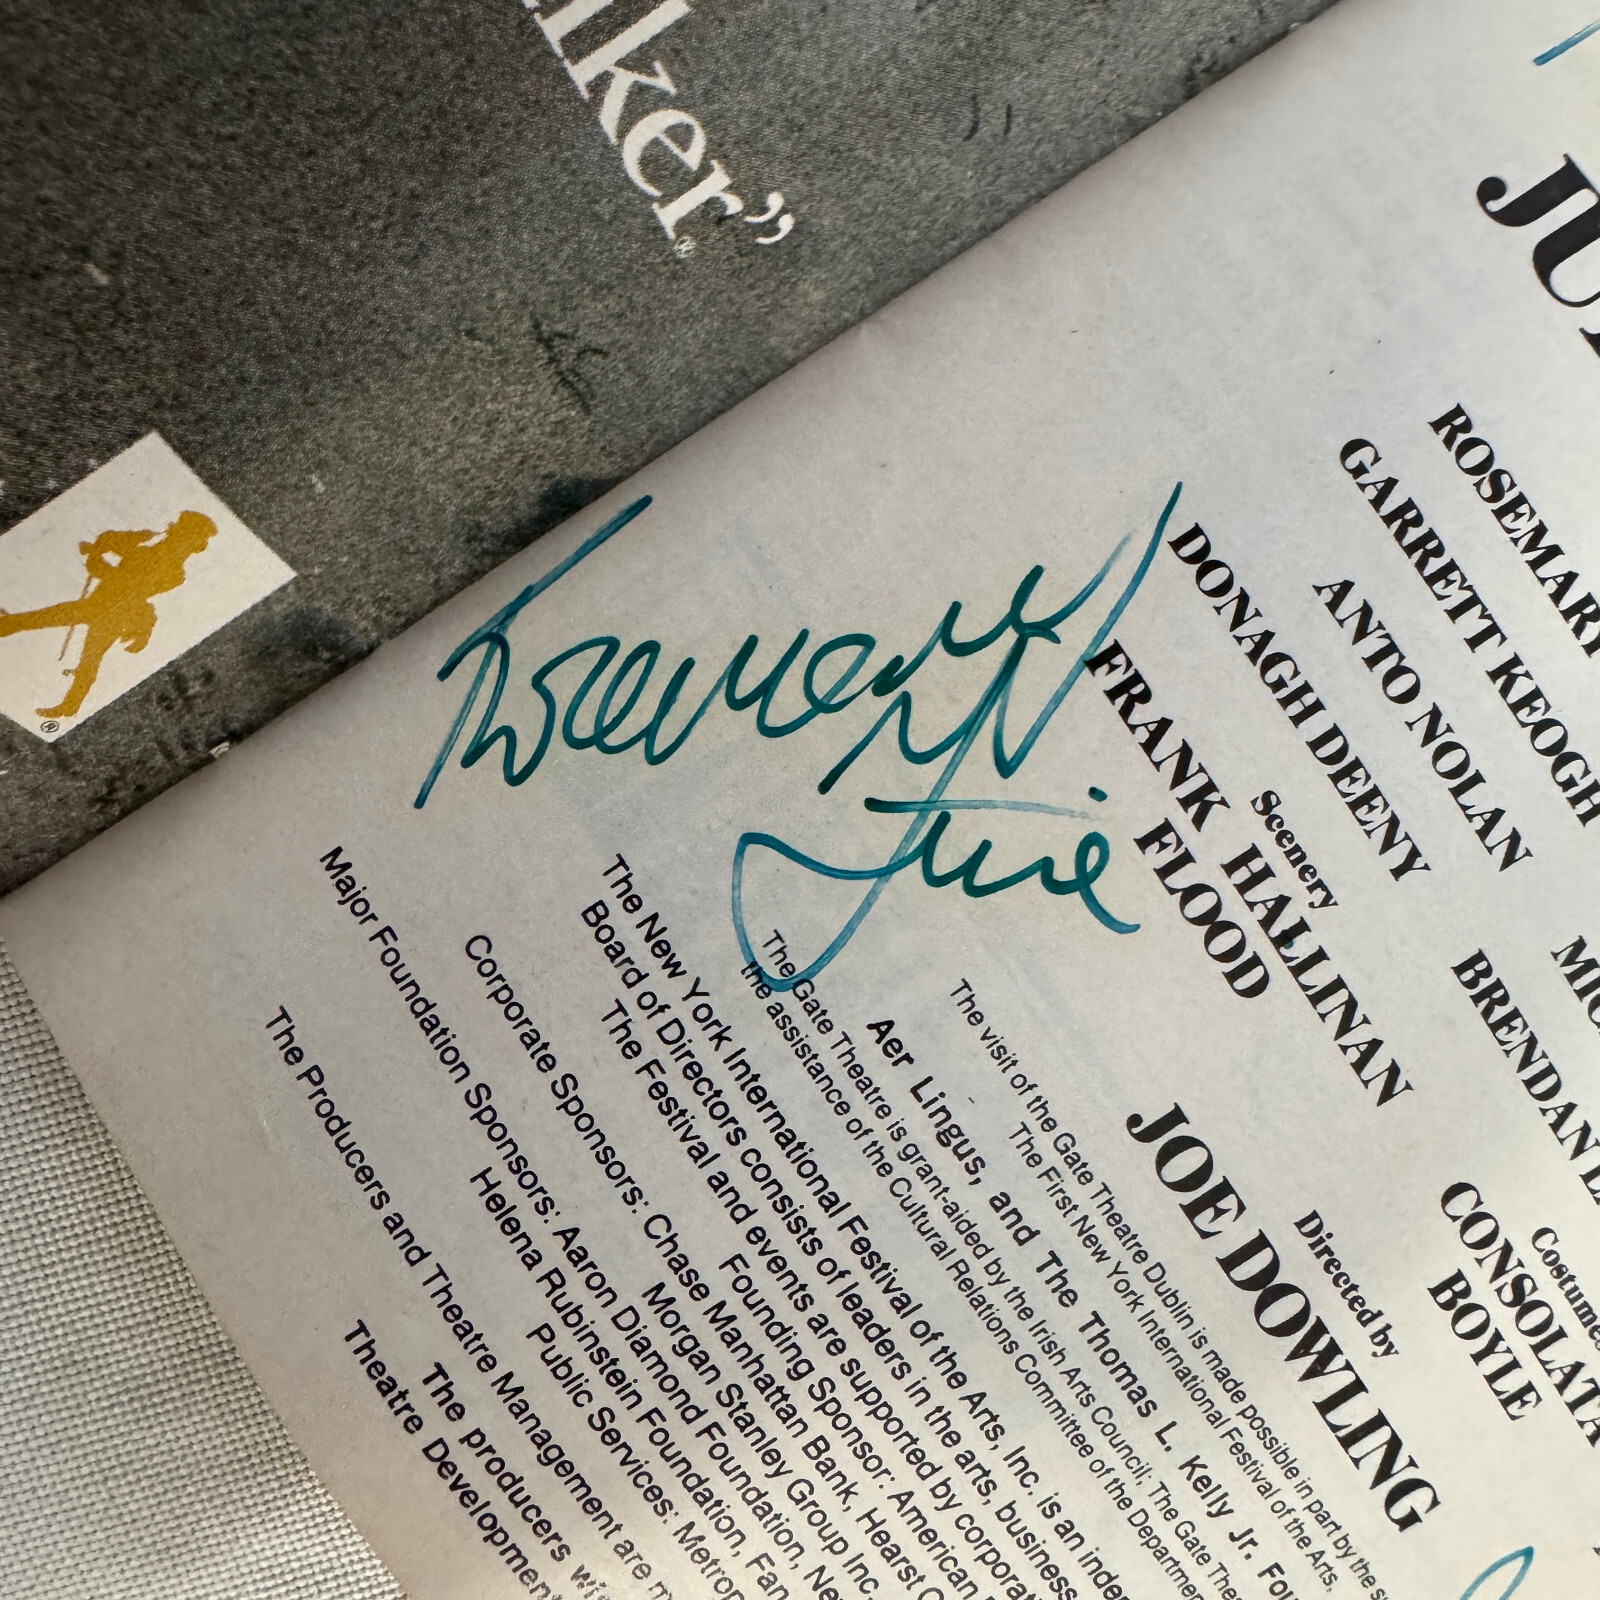 lker"®
®
JU
ROSEMARY
GARRETT KEOGH
ANTO NOLAN
DONAGH DEENY
MIC
BRENDAN
Scenery
FRANK HALLINAN
FLOOD
Costume
CONSOLATA
BOYLE
Directed by
JOE DOWLING
Rosemary Fine
The visit of the Gate Theatre Dublin is made possible in part by the
The First New York International Festival of the Arts,
Aer Lingus, and The Thomas L. Kelly Jr. Fou
The Gate Theatre is grant-aided by the Irish Arts Council; The Gate Thea
the assistance of the Cultural Relations Committee of the Departmen
The New York International Festival of the Arts, Inc. is an indep
Board of Directors consists of leaders in the arts, business
The Festival and events are supported by corporat
Founding Sponsor: American
Corporate Sponsors: Chase Manhattan Bank, Hearst C
Morgan Stanley Group Inc.
Major Foundation Sponsors: Aaron Diamond Foundation, Ne
Helena Rubinstein Foundation, Fan
Public Services: Metrop
The Producers and Theatre Management are m
The producers wi
Theatre Development